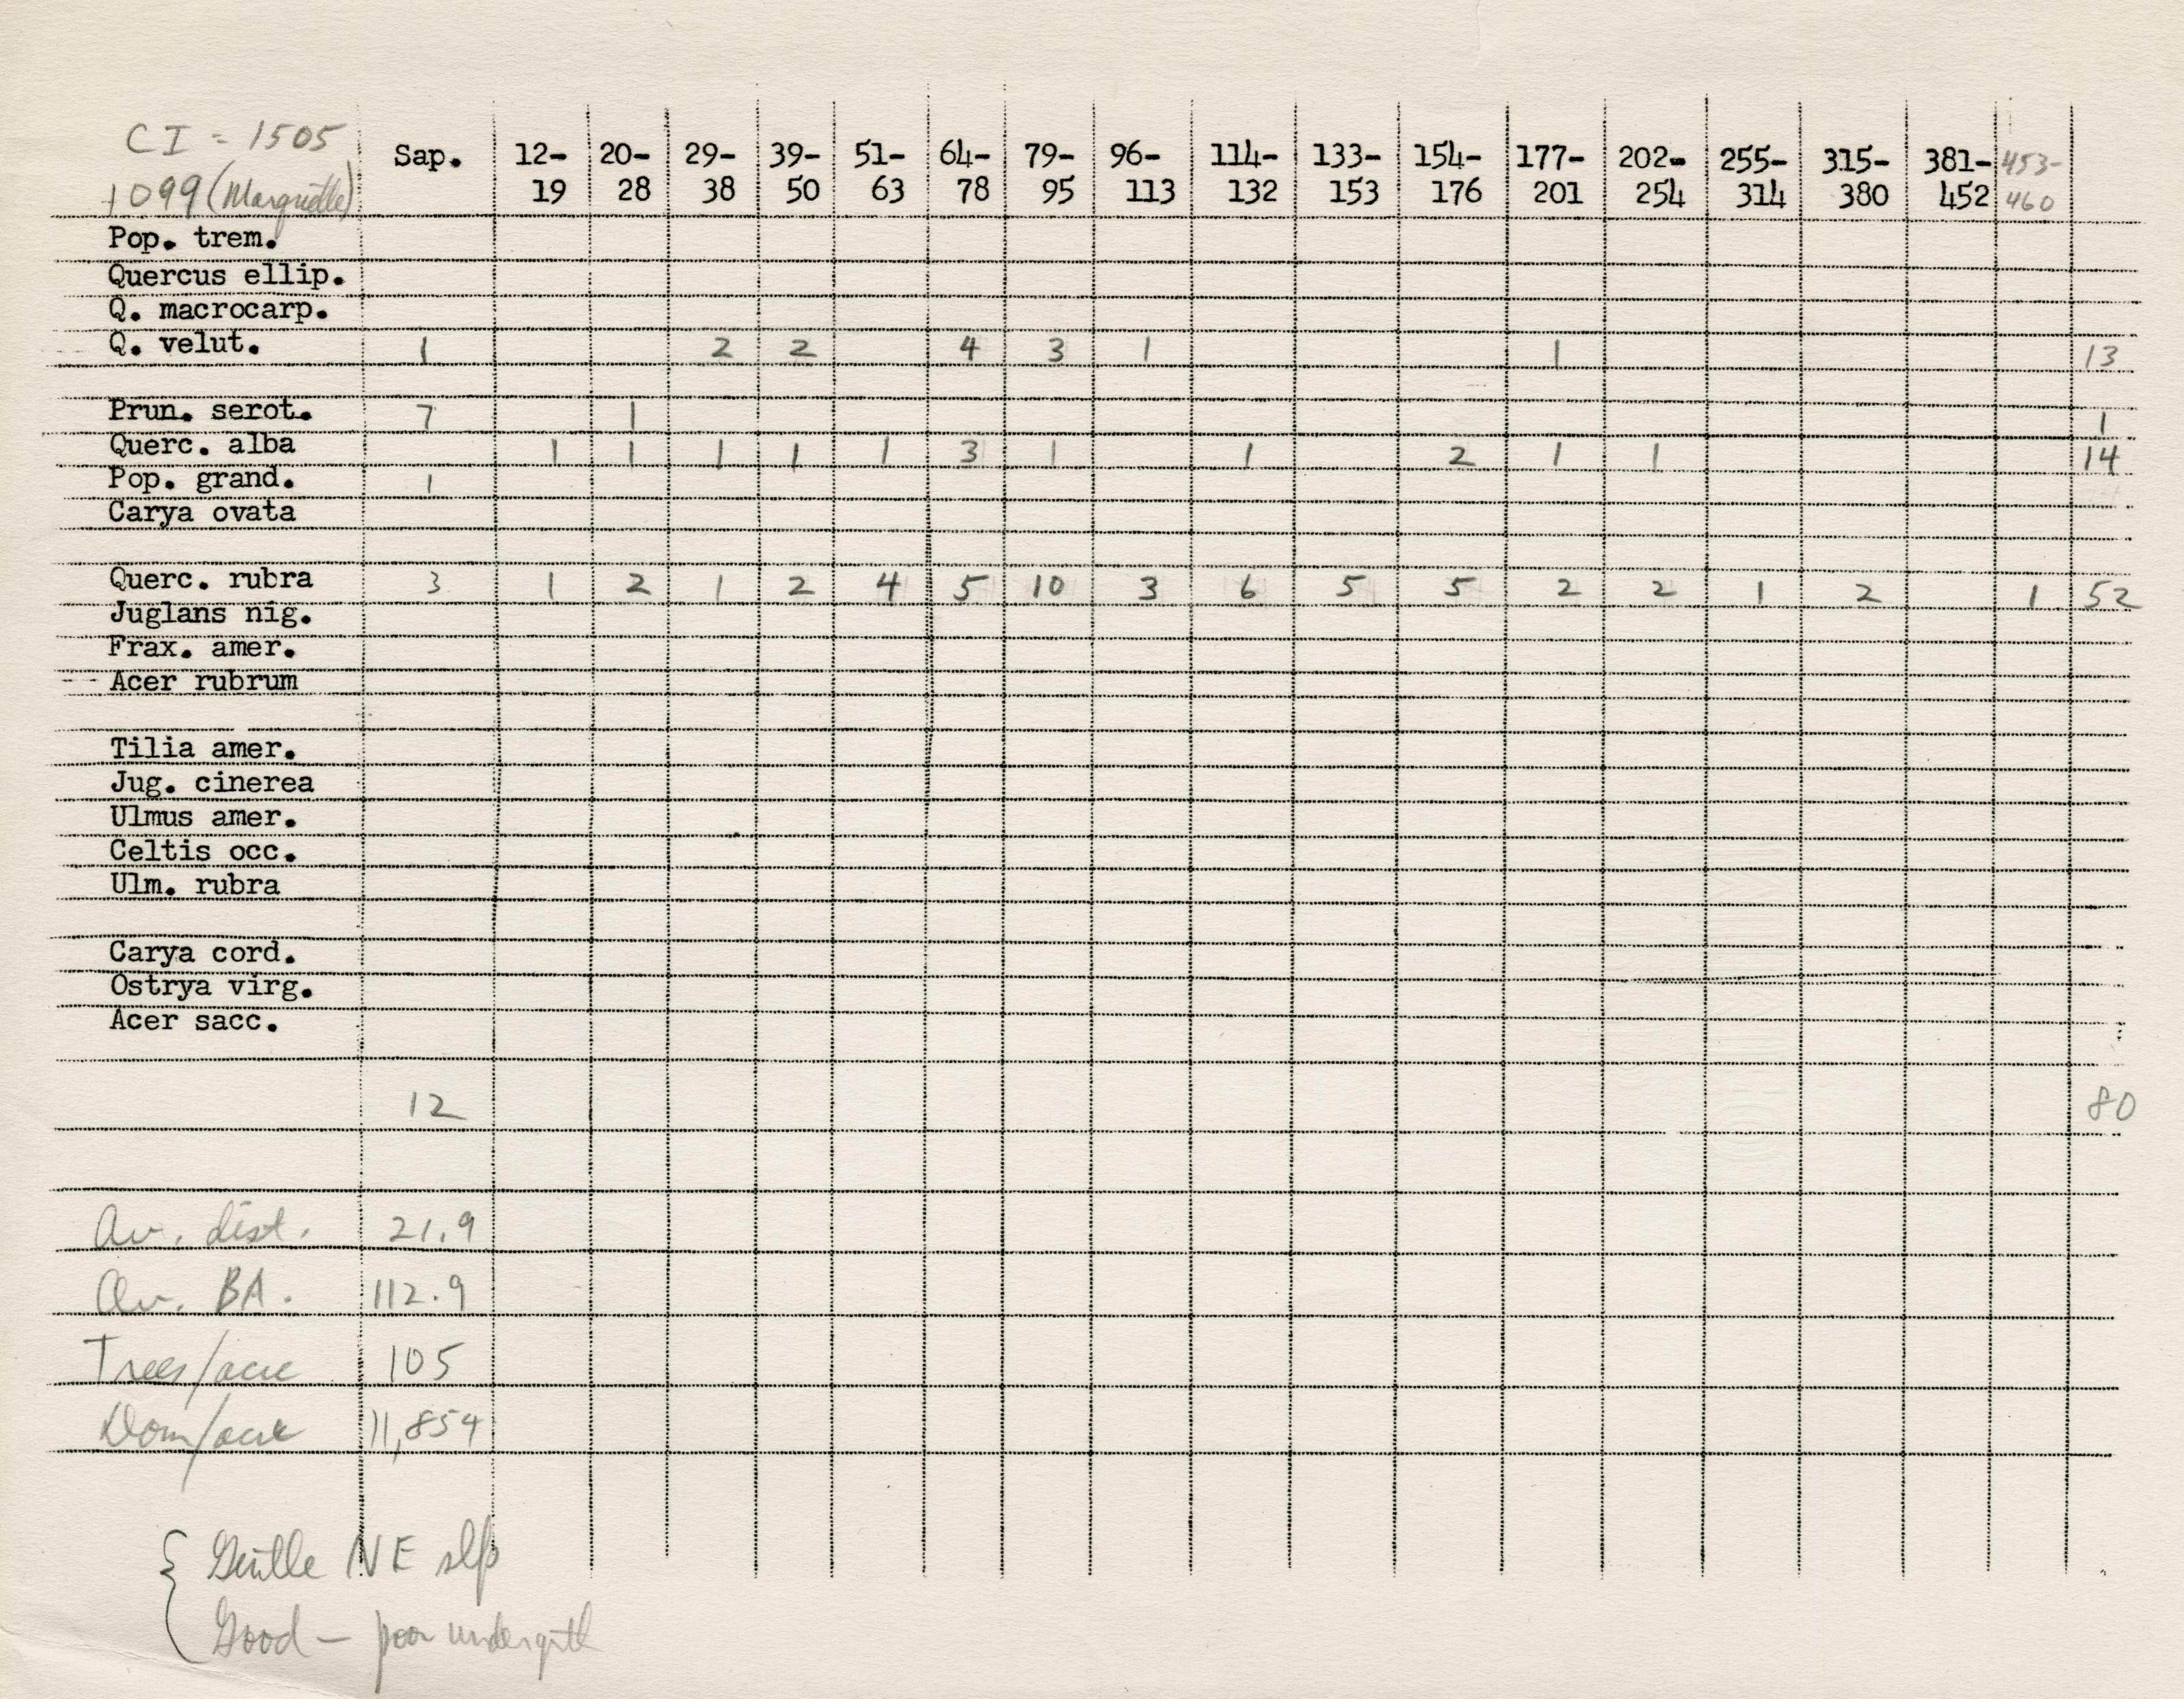 CI = 1505
1099 (Marquette)
Sap. 12-19 20-28 29-38 39-50 51-63 64-78 79-95 96-113 114-132 133-153 154-176 177-201 202-254 255-314 315-380 381-452 453-460
Pop. trem.
Quercus ellip.
Q. macrocarp.
Q. velut. 1 2 2 4 3 1 1 13
Prun. serot. 7 1 1
Querc. alba 1 1 1 1 1 3 1 1 2 1 1 14
Pop. grand. 1
Carya ovata
Querc. rubra 3 1 2 1 2 4 5 10 3 6 5 5 2 2 1 2 1 52
Juglans nig.
Frax. amer.
Acer rubrum
Tilia amer.
Jug. cinerea
Ulmus amer.
Celtis occ.
Ulm. rubra
Carya cord.
Ostrya virg.
Acer sacc.
12 80
Av. dist. 21.9
Av. BA. 112.9
Trees/acre 105
Dom/acre 11,854
Gentle NE slp
Good — poor undergrth